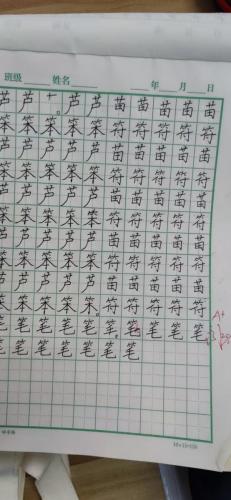 班级 姓名 年 月 日
芦 芦 艹 芦 芦 苗 苗 苗 苗 苗
笨 笨 笨 笨 笨 符 符 符 符 符
芦 芦 芦 芦 芦 苗 苗 苗 苗 苗
笨 笨 笨 笨 笨 符 符 符 符 符
芦 芦 芦 芦 芦 苗 苗 苗 苗 苗
笨 笨 笨 笨 笨 符 符 符 符 符
芦 芦 芦 芦 芦 苗 苗 苗 苗 苗
笨 笨 笨 笨 笨 符 符 符 符 符
芦 芦 芦 芦 芦 苗 苗 苗 苗 苗
笨 笨 笨 笨 笨 符 符 符 符 符
笔 笔 笔 笔 笔 笔 笔 笔 笔 笔
A+
笔 笔 笔 笔 笔 笔 笔
10×15=150